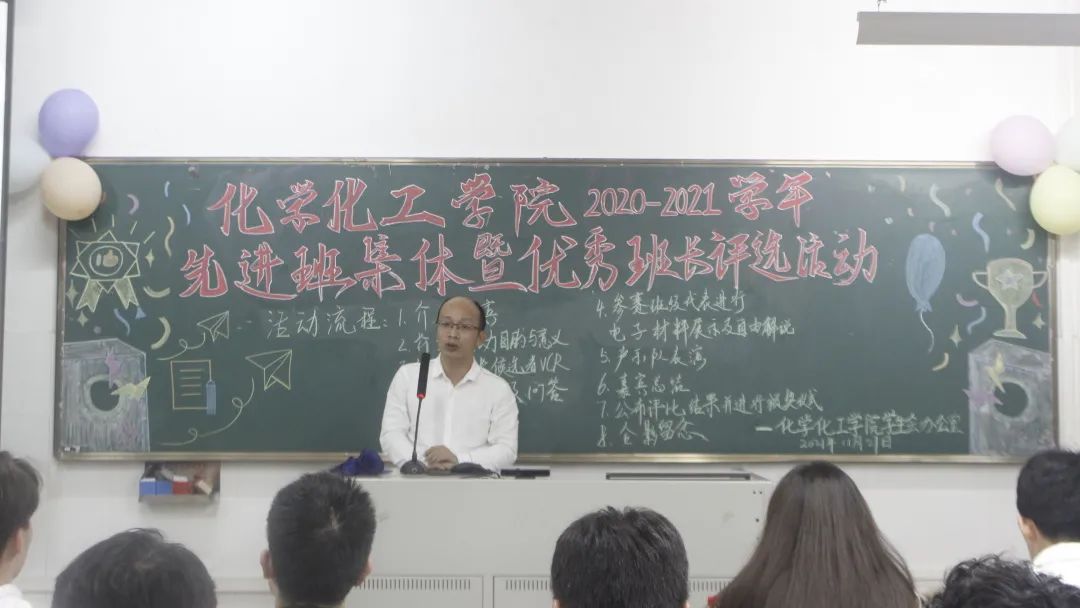 化学化工学院2020-2021学年
先进班集体暨优秀班长评选活动
活动流程:
1.介
2.介 动目的与意义
候选者VCR
问答
4.参赛班级代表进行
电子材料展示及自由解说
5.声乐队表演
6.嘉宾总结
7.公布评比结果并进行颁奖仪式
8.合影留念
—化学化工学院学生会办公室
2021年11月